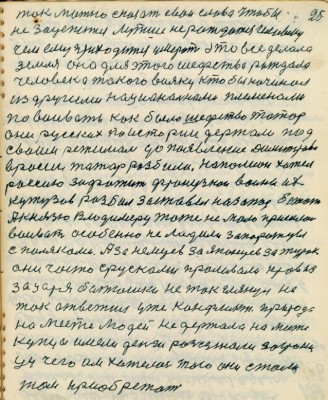 так можно сказат свои слова чтобы 95
не зацепится лутше не рождатся человеку
чем ему приходится умерат это все делала
земля она для этого шедевства рождала
человека такого вояку кто бы начинал
из другими национальными племенами
по воивать как было шедевство татар
они русских по истории держали под
своим режимам до появление Дмитрия
вросии татар разбили. Наполион хотел
россию задрожит французкой воина их
кутузов розбил заставил назатор бежат
Акнязю Владимеру тоже не мало пришлос
воеват особенно че ладили запорожци
с поляками. А за немцев за японцев за турок
они часто срускоми проливали кров из
за царя батюшки не так глянул не
так ответил уже конфликт природа
на месте людей не держала на мести
купци имели денги розъежали заграни
цу чего им хателос того они стали
там приобретат